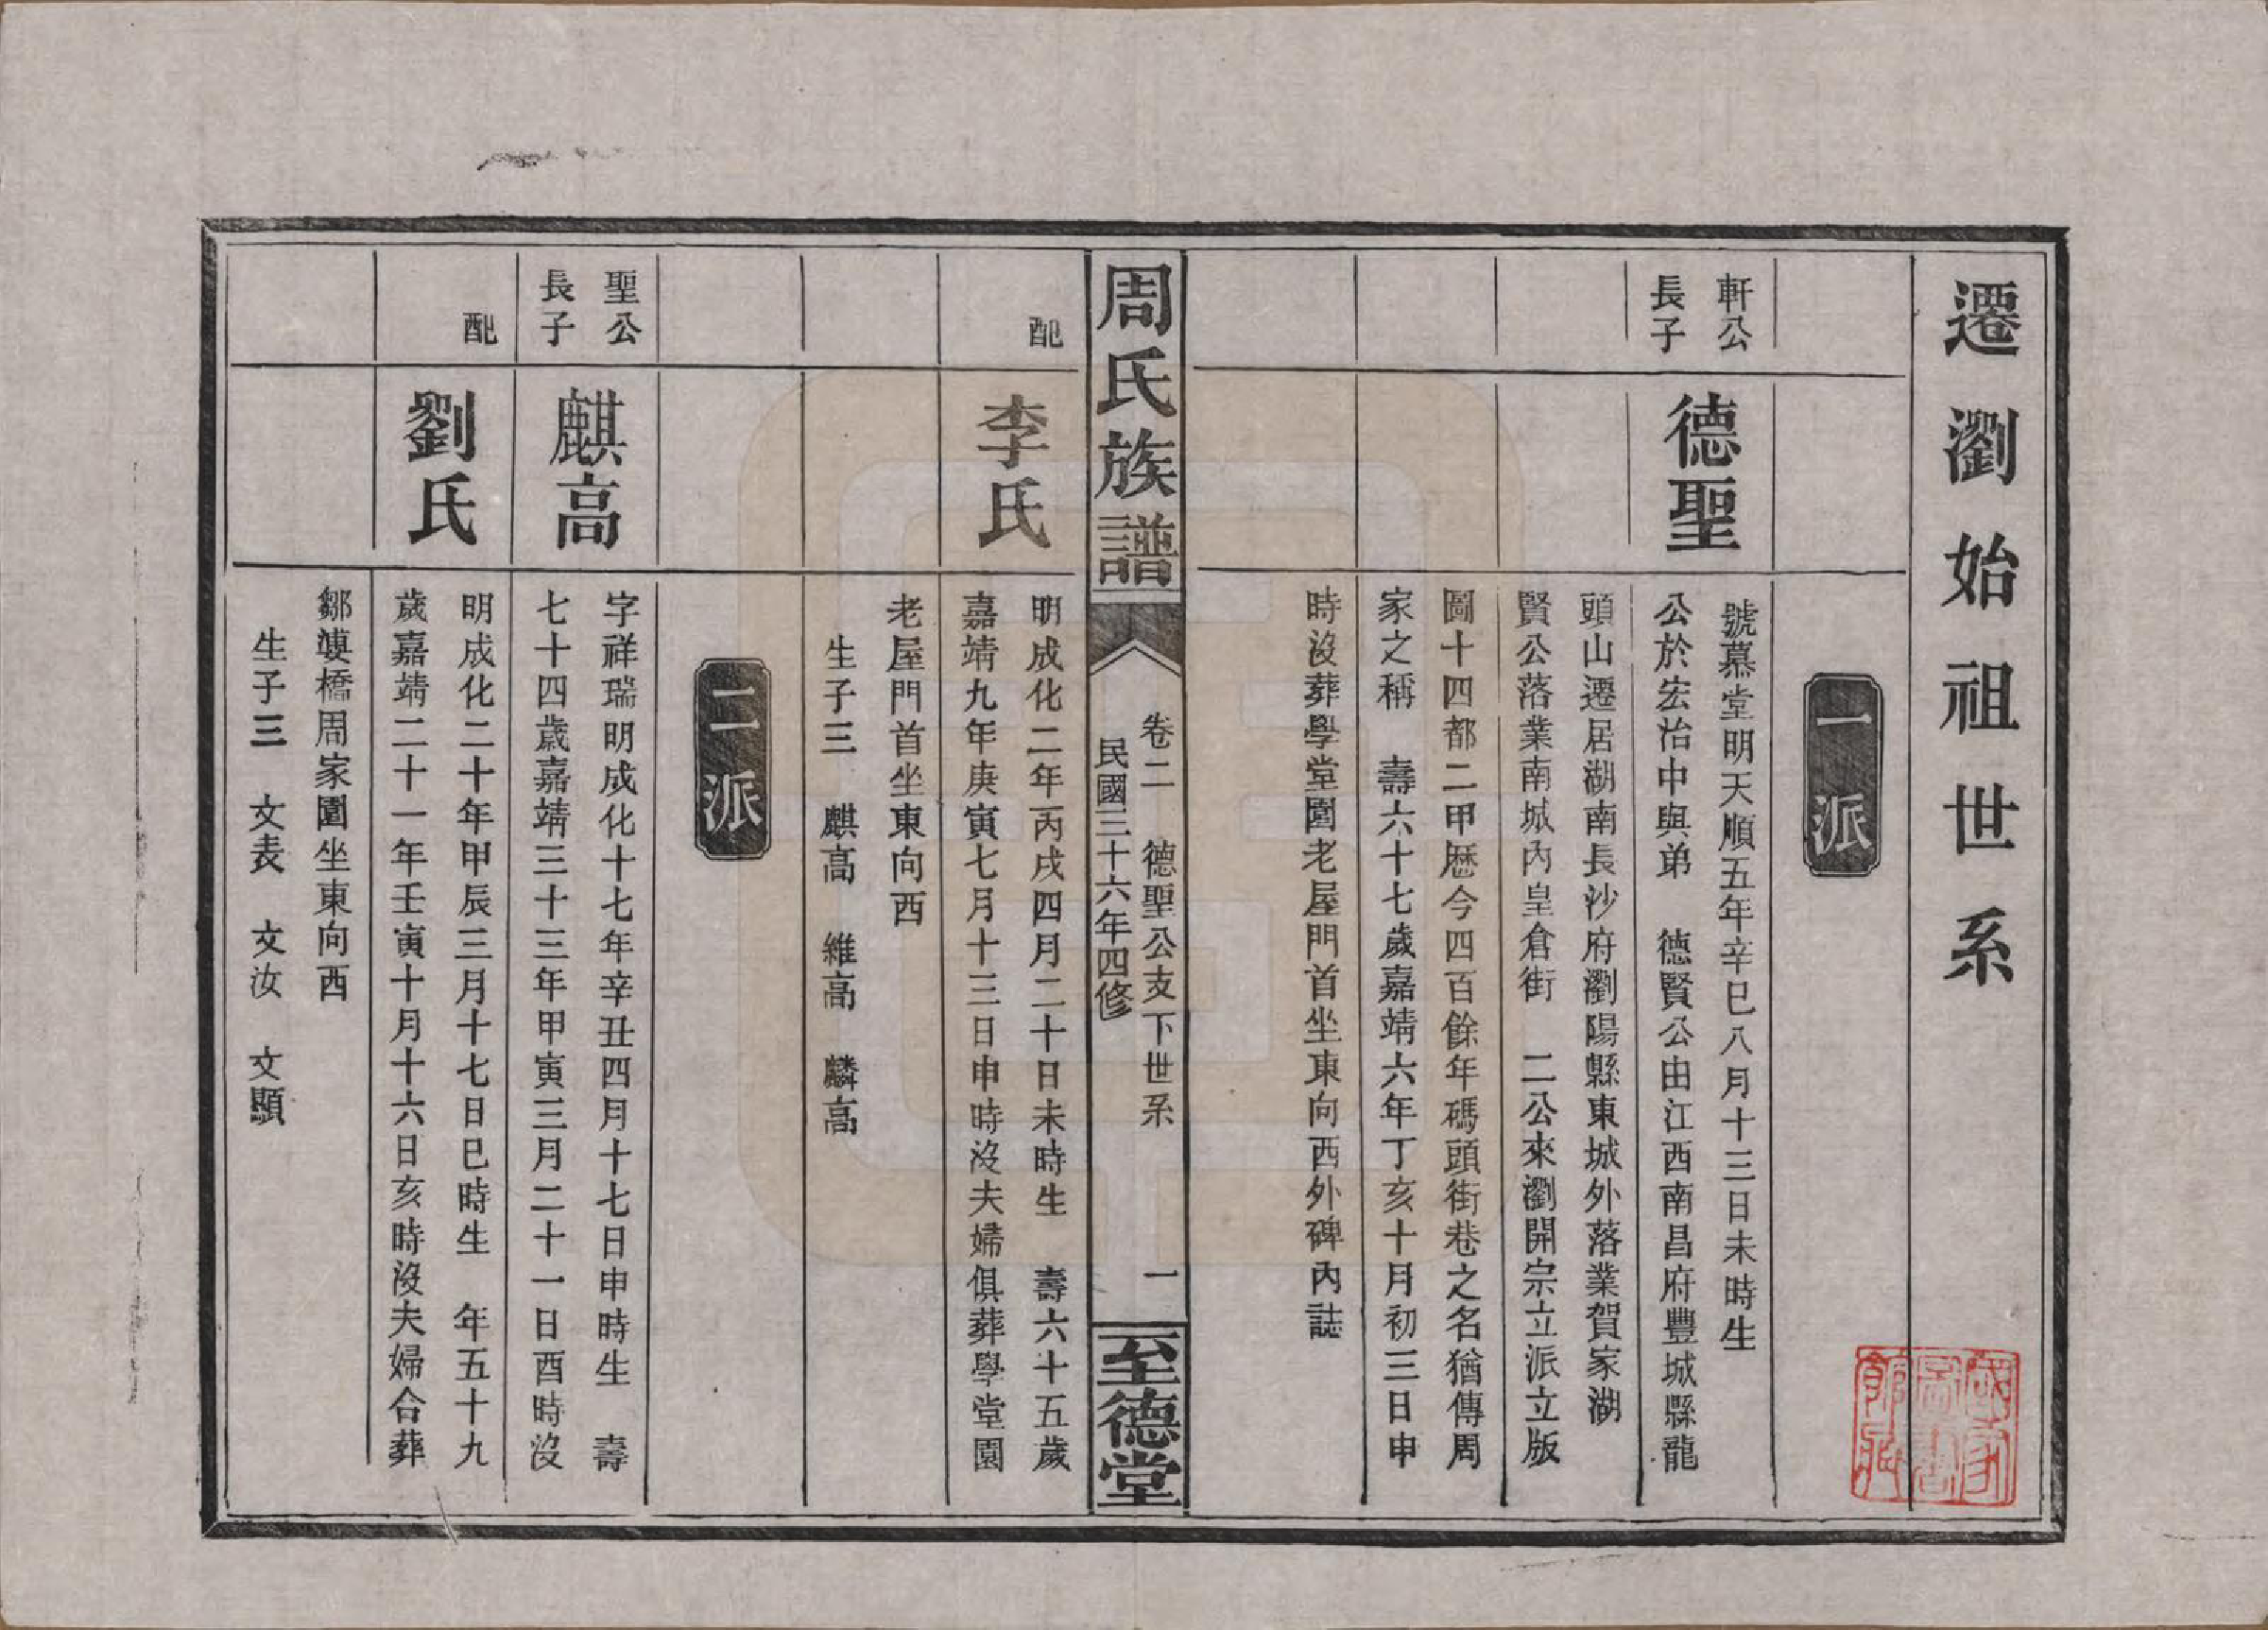 遷瀏始祖世系
一派
軒公
長子
德聖
號慕堂明天順五年辛巳八月十三日未時生
公於宏治中與弟　德賢公由江西南昌府豐城縣龍
頭山遷居湖南長沙府瀏陽縣東城外落業賀家湖
賢公落業南城內皇倉街　二公來瀏開宗立派立版
圖十四都二甲歷今四百餘年碼頭街巷之名猶傳周
家之稱　壽六十七歲嘉靖六年丁亥十月初三日申
時沒葬學堂園老屋門首坐東向西外碑內誌
周氏族譜
卷二　德聖公支下世系　一
民國三十六年四修
至德堂
配
李氏
明成化二年丙戌四月二十日未時生　壽六十五歲
嘉靖九年庚寅七月十三日申時沒夫婦俱葬學堂園
老屋門首坐東向西
生子三　麒高　維高　麟高
二派
聖公
長子
麒高
字祥瑞明成化十七年辛丑四月十七日申時生　壽
七十四歲嘉靖三十三年甲寅三月二十一日酉時沒
配
劉氏
明成化二十年甲辰三月十七日巳時生　年五十九
歲嘉靖二十一年壬寅十月十六日亥時沒夫婦合葬
鄒婕橋周家園坐東向西
生子三　文表　文汝　文顯
國家圖書館藏